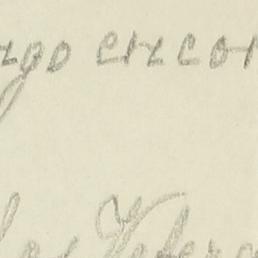 rgo encon
los Vetera